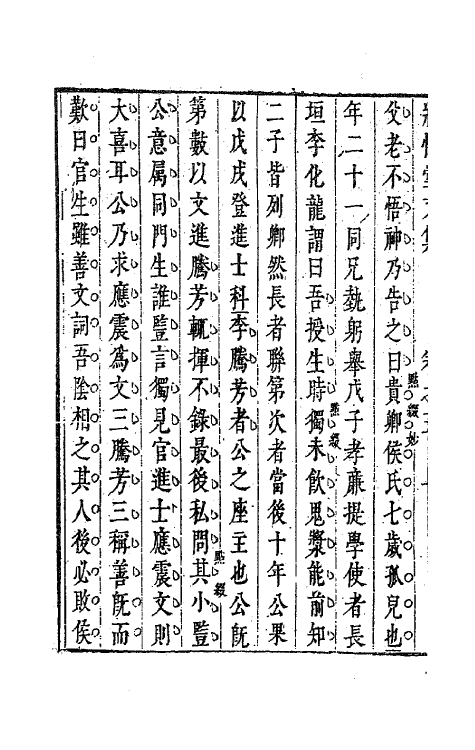 父老不悟神乃告之曰貴卿侯氏七歲孤兒也
點綴妙
年二十一同兄執躬舉戊子孝廉提學使者長
垣李化龍謂曰吾授生時獨未飲鬼漿能前知
點綴
二子皆列卿然長者聯第次者當後十年公果
以戊戌登進士科李騰芳者公之座主也公既
第數以文進騰芳輒揮不錄最後私問其小豎
點綴
公意属同門生誰豎言獨見官進士應震文則
大喜耳公乃求應震為文三騰芳三稱善既而
歎曰官生雖善文詞吾陰相之其人後必敗侯